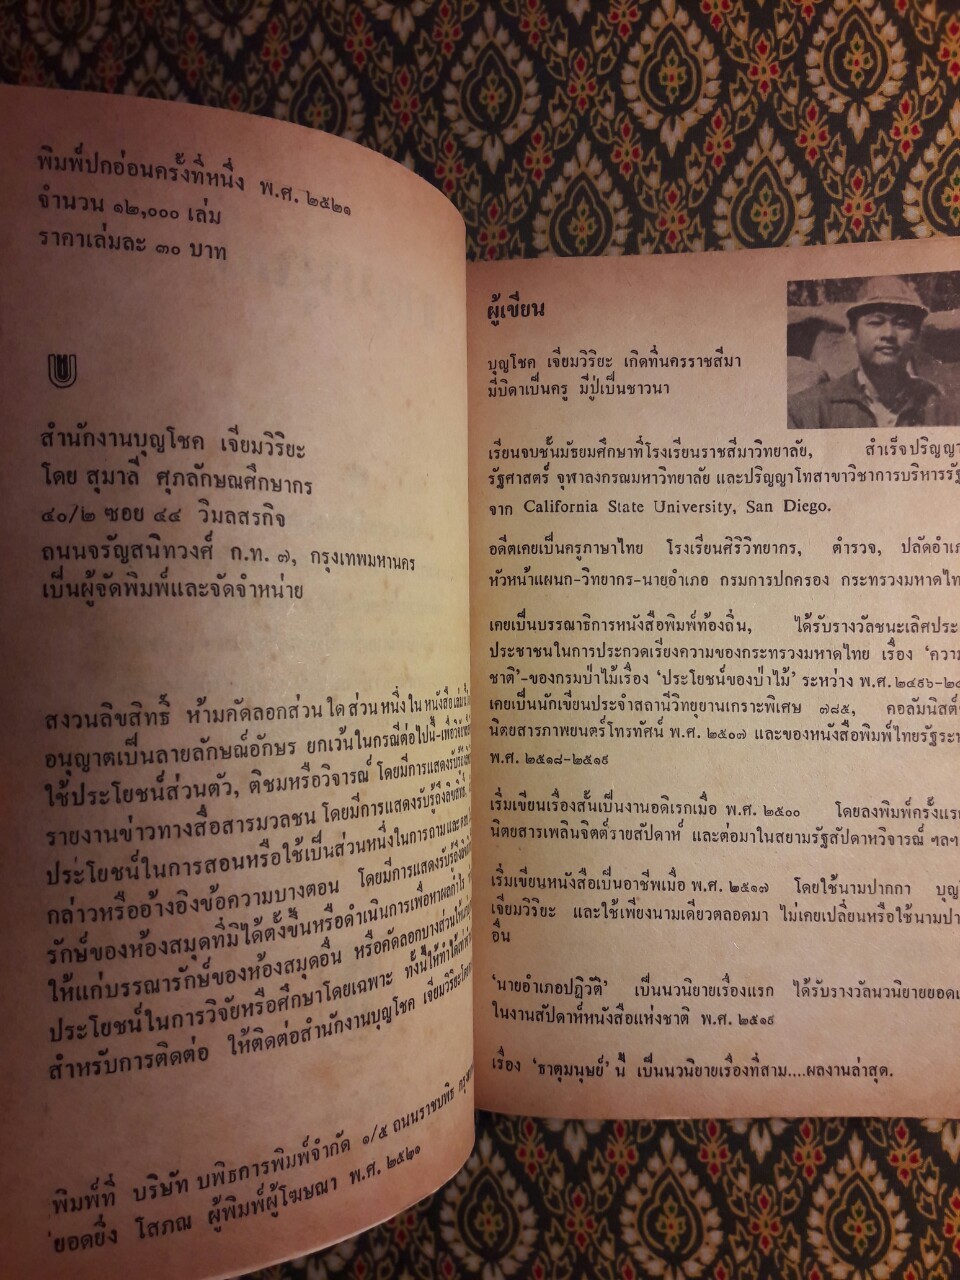 พิมพ์ปกอ่อนครั้งที่หนึ่ง พ.ศ. ๒๕๒๑
จำนวน ๑๒,๐๐๐ เล่ม
ราคาเล่มละ ๓๐ บาท
สำนักงานบุญโชค เจียมวิริยะ
โดย สุมาลี ศุภลักษณศึกษากร
๔๐/๒ ซอย ๔๔ วิมลสรกิจ
ถนนจรัญสนิทวงศ์ ก.ท. ๗, กรุงเทพมหานคร
เป็นผู้จัดพิมพ์และจัดจำหน่าย
สงวนลิขสิทธิ์ ห้ามคัดลอกส่วนใดส่วนหนึ่งในหนังสือเล่มนี้
อนุญาตเป็นลายลักษณ์อักษร ยกเว้นในกรณีต่อไปนี้-เพื่อวิจัย
ใช้ประโยชน์ส่วนตัว, ติชมหรือวิจารณ์ โดยมีการแสดงรับรู้
รายงานข่าวทางสื่อสารมวลชน โดยมีการแสดงรับรู้ถึงลิขสิทธิ์
ประโยชน์ในการสอนหรือใช้เป็นส่วนหนึ่งในการถามและ
กล่าวหรืออ้างอิงข้อความบางตอน โดยมีการแสดงรับรู้ถึงลิขสิทธิ์
รักษ์ของห้องสมุดที่มิได้ตั้งขึ้นหรือดำเนินการเพื่อหาผลกำไร
ให้แก่บรรณารักษ์ของห้องสมุดอื่น หรือคัดลอกบางส่วน
ประโยชน์ในการวิจัยหรือศึกษาโดยเฉพาะ ทั้งนี้ให้ทำได้
สำหรับการติดต่อ ให้ติดต่อสำนักงานบุญโชค เจียมวิริยะ
พิมพ์ที่ บริษัท บพิธการพิมพ์จำกัด ๑/๕ ถนนราชบพิธ
ยอดยิ่ง โสภณ ผู้พิมพ์ผู้โฆษณา พ.ศ. ๒๕๒๑
ผู้เขียน
บุญโชค เจียมวิริยะ เกิดที่นครราชสีมา
มีบิดาเป็นครู มีปู่เป็นชาวนา
เรียนจบชั้นมัธยมศึกษาที่โรงเรียนราชสีมาวิทยาลัย, สำเร็จปริญญา
รัฐศาสตร์ จุฬาลงกรณมหาวิทยาลัย และปริญญาโทสาขาวิชาการบริหารรัฐ
จาก California State University, San Diego.
อดีตเคยเป็นครูภาษาไทย โรงเรียนศิริวิทยากร, ตำรวจ, ปลัดอำเภ
หัวหน้าแผนก-วิทยากร-นายอำเภอ กรมการปกครอง กระทรวงมหาดไท
เคยเป็นบรรณาธิการหนังสือพิมพ์ท้องถิ่น, ได้รับรางวัลชนะเลิศประเ
ประชาชนในการประกวดเรียงความของกระทรวงมหาดไทย เรื่อง 'ความ
ชาติ'-ของกรมป่าไม้เรื่อง 'ประโยชน์ของป่าไม้' ระหว่าง พ.ศ. ๒๔๙๖-๒๔
เคยเป็นนักเขียนประจำสถานีวิทยุยานเกราะพิเศษ ๗๘๕, คอลัมนิสต์
นิตยสารภาพยนตร์โทรทัศน์ พ.ศ. ๒๕๐๗ และของหนังสือพิมพ์ไทยรัฐระห
พ.ศ. ๒๕๑๘-๒๕๑๙
เริ่มเขียนเรื่องสั้นเป็นงานอดิเรกเมื่อ พ.ศ. ๒๕๐๐ โดยลงพิมพ์ครั้งแรก
นิตยสารเพลินจิตต์รายสัปดาห์ และต่อมาในสยามรัฐสัปดาหวิจารณ์ ฯลฯ
เริ่มเขียนหนังสือเป็นอาชีพเมื่อ พ.ศ. ๒๕๑๗ โดยใช้นามปากกา บุญโ
เจียมวิริยะ และใช้เพียงนามเดียวตลอดมา ไม่เคยเปลี่ยนหรือใช้นามปา
อื่น
'นายอำเภอปฏิวัติ' เป็นนวนิยายเรื่องแรก ได้รับรางวัลนวนิยายยอดเ
ในงานสัปดาห์หนังสือแห่งชาติ พ.ศ. ๒๕๑๙
เรื่อง 'ธาตุมนุษย์' นี้ เป็นนวนิยายเรื่องที่สาม....ผลงานล่าสุด.